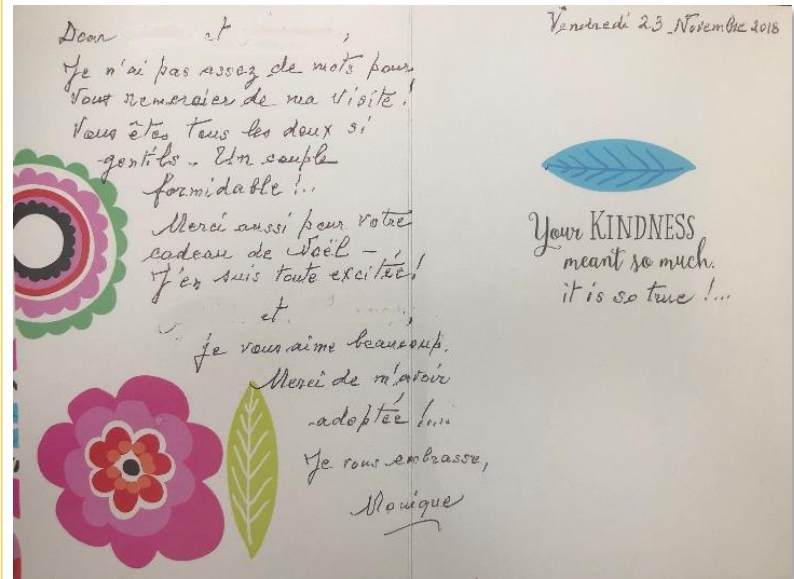 Vendredi 23 Novembre 2018
Dear et ,
Je n'ai pas assez de mots pour
vous remercier de ma visite !
Vous êtes tous les deux si
gentils - Un couple
formidable !..
Merci aussi pour votre
cadeau de Noël -
J'en suis toute excitée !
et ,
je vous aime beaucoup.
Merci de m'avoir
adoptée !....
Je vous embrasse,
Monique
Your KINDNESS
meant so much.
it is so true !...